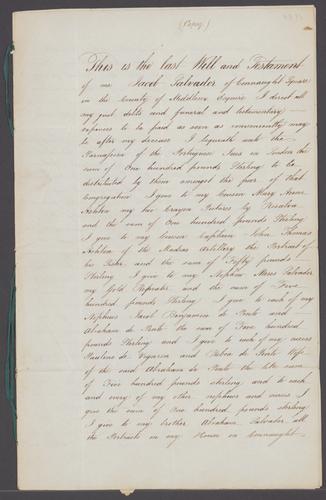 (Copy.)
This is the last Will and Testament
of me Jacob Salvador of Connaught Square
in the County of Middlesex Esquire I direct all
my just debts and funeral and testamentary
expences to be paid as soon as conveniently may
be after my decease I bequeath unto the
of the Portuguese Jews in London the
sum of One hundred pounds Sterling to be
distributed by them amongst the poor of that
Congregation I give to my Cousin Mary Anne
Ashton my two Crayon Pictures by Rosalba
and the sum of One hundred Pounds Sterling
I give to my cousin Captain John Thomas
Ashton of the Madras Artillery the Portrait of
his Sister and the sum of Fifty pounds
Sterling I give to my Nephew Moses Salvador
my Gold Repeater and the sum of Five
hundred pounds Sterling I give to each of my
Nephews Jacob Benjamin de Ponte and
Abraham de Ponte the sum of Five hundred
pounds Sterling and I give to each of my nieces
Paulina de and de Ponte Wife
of the said Abraham de Ponte the like sum
of Five hundred pounds sterling and to each
and every of my other nephews and nieces I
give the sum of One hundred pounds sterling
I give to my brother Abraham Salvador all
the Portraits in my House in Connaught